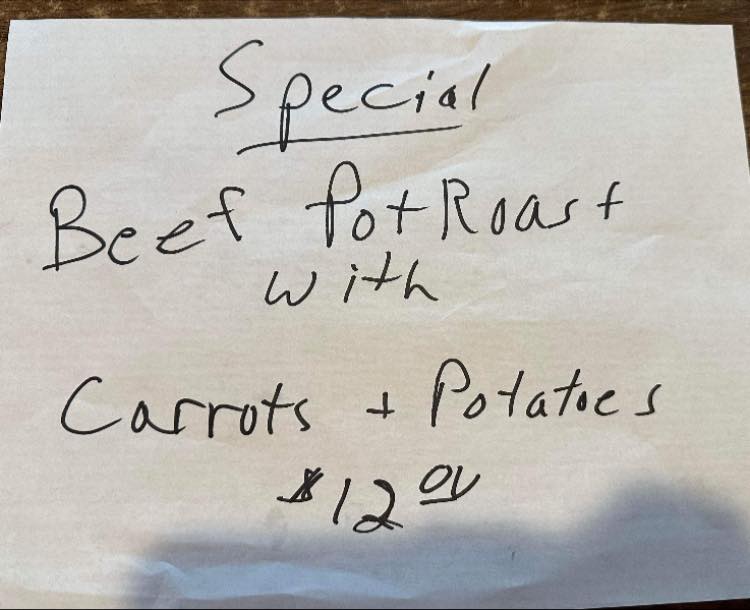 Special
Beef Pot Roast
with
Carrots + Potatoes
$12 00